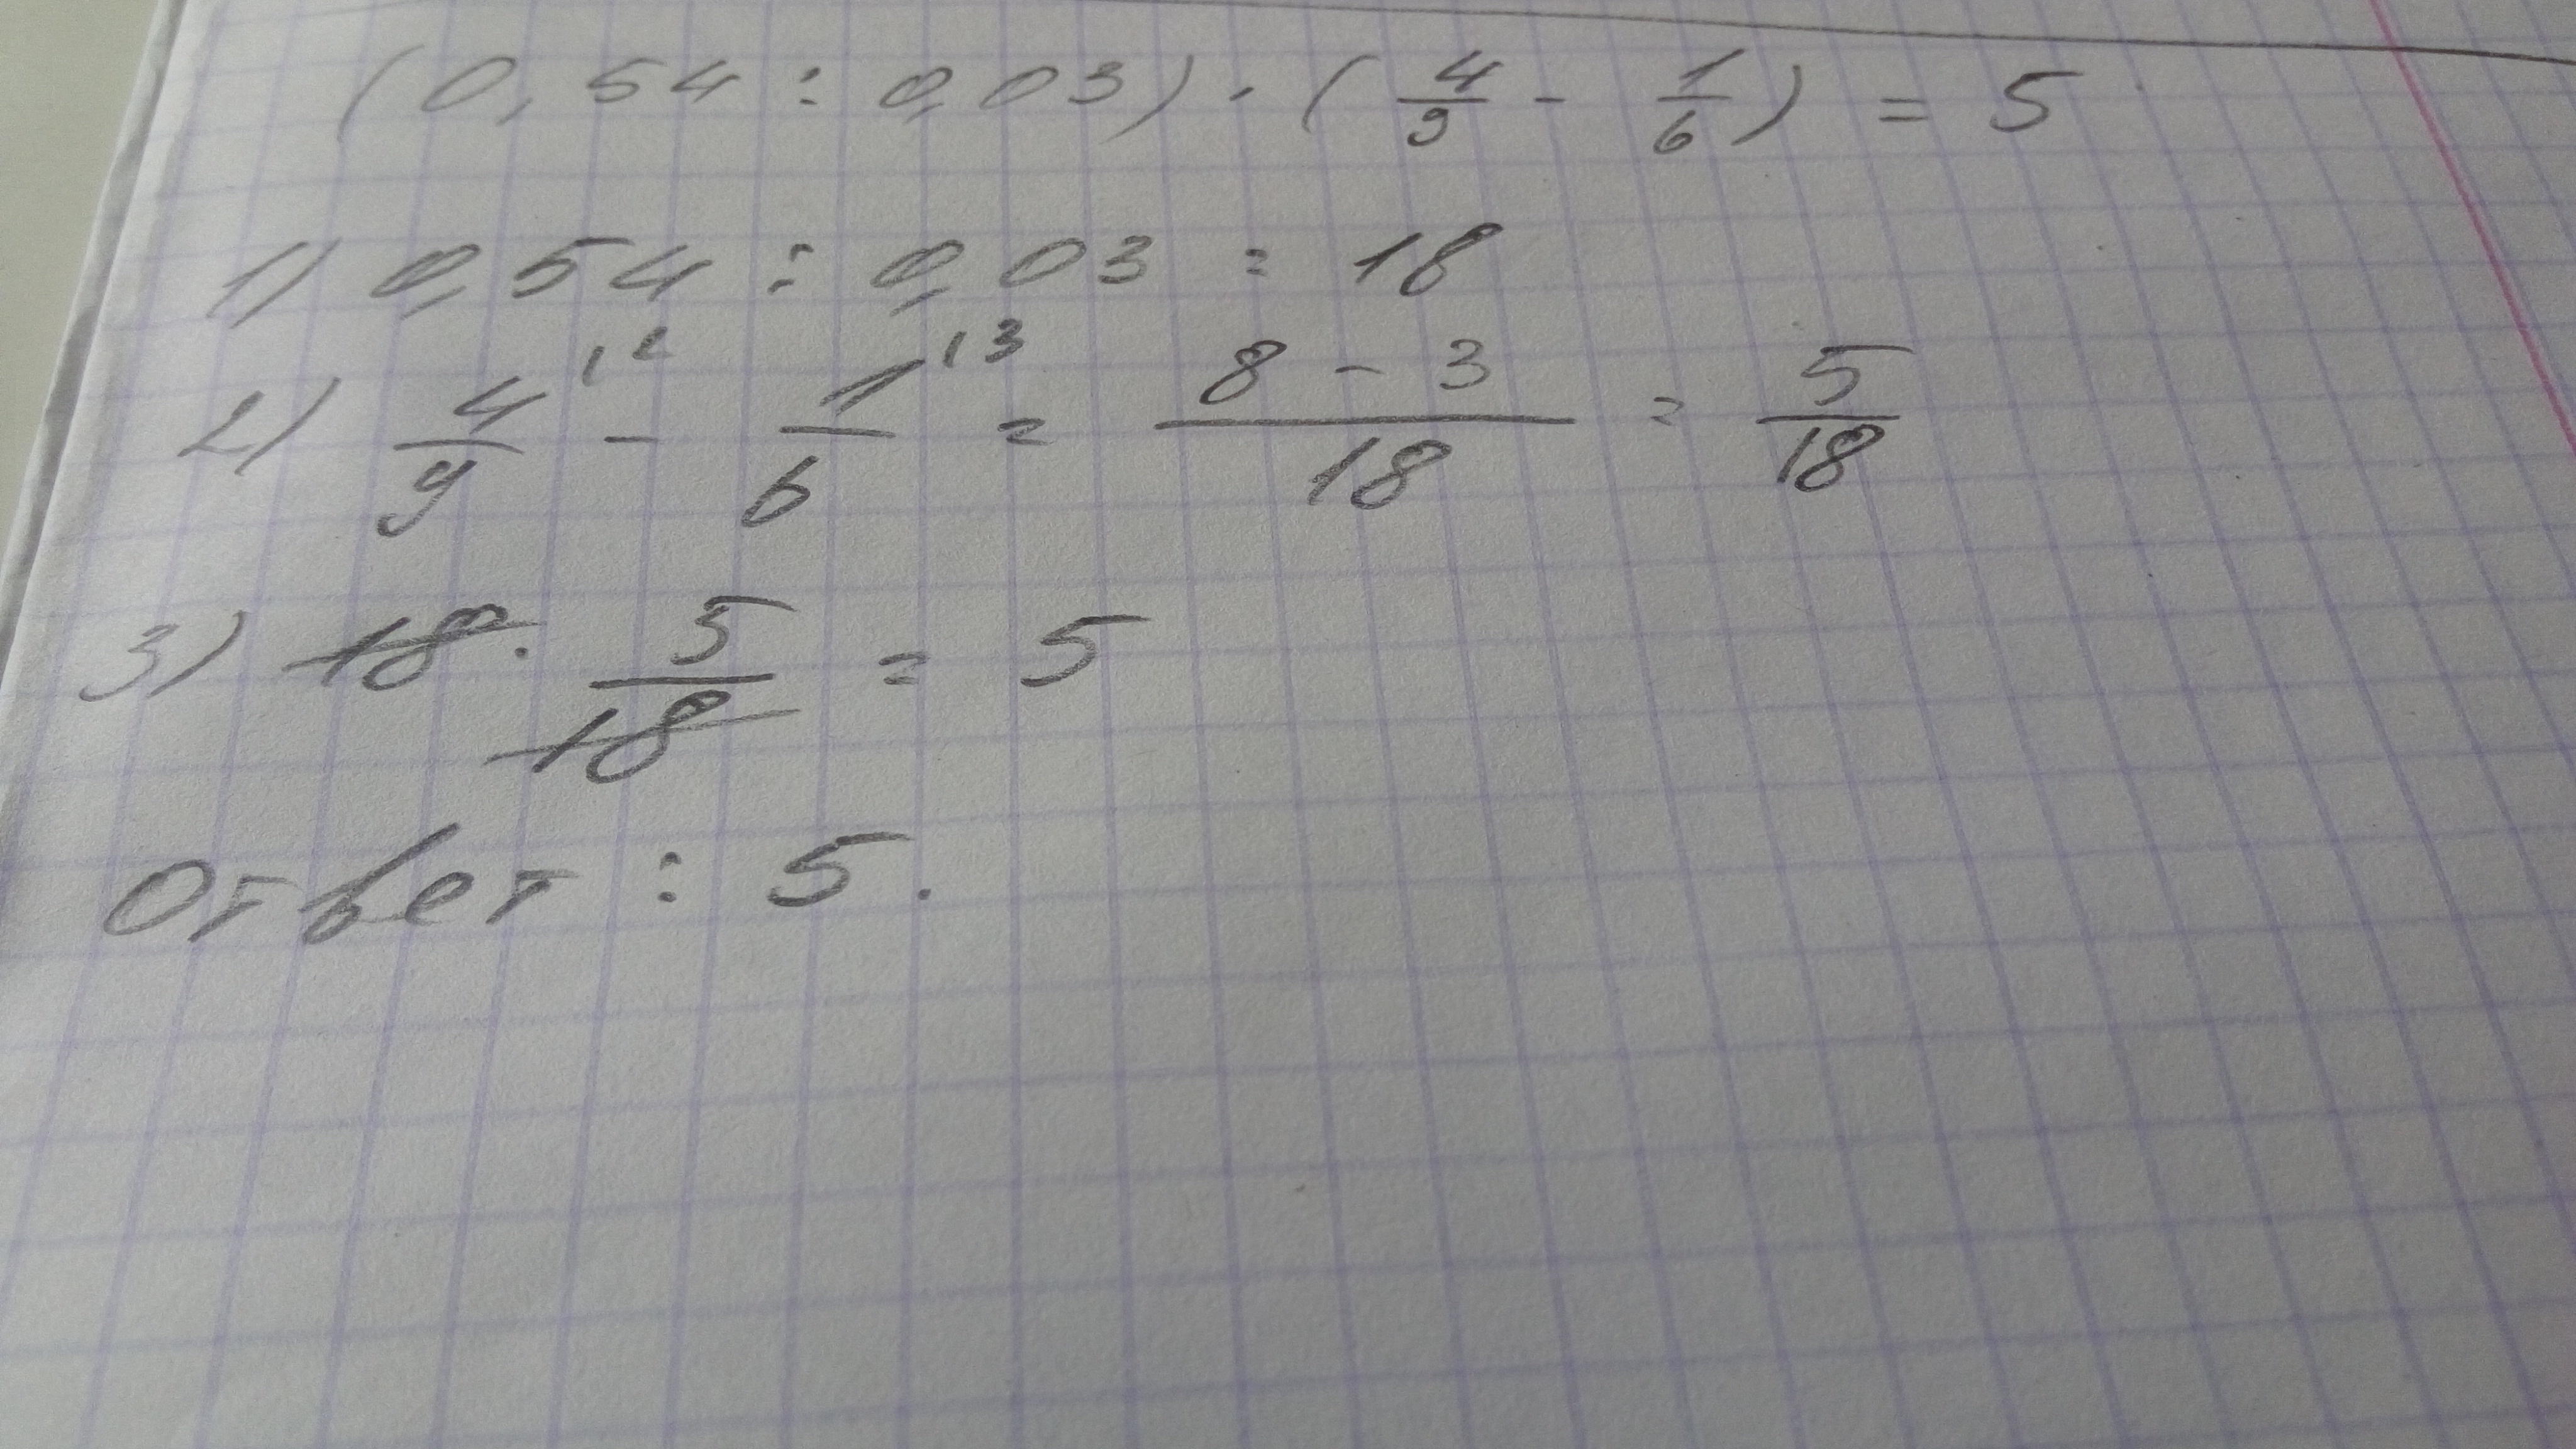 (0,54 : 0,03) · (4/9 - 1/6) = 5
1) 0,54 : 0,03 = 18
2) 4/9 ¹² - 1/6 ¹³ = (8 - 3)/18 = 5/18
3) 18 · 5/18 = 5
Ответ : 5.